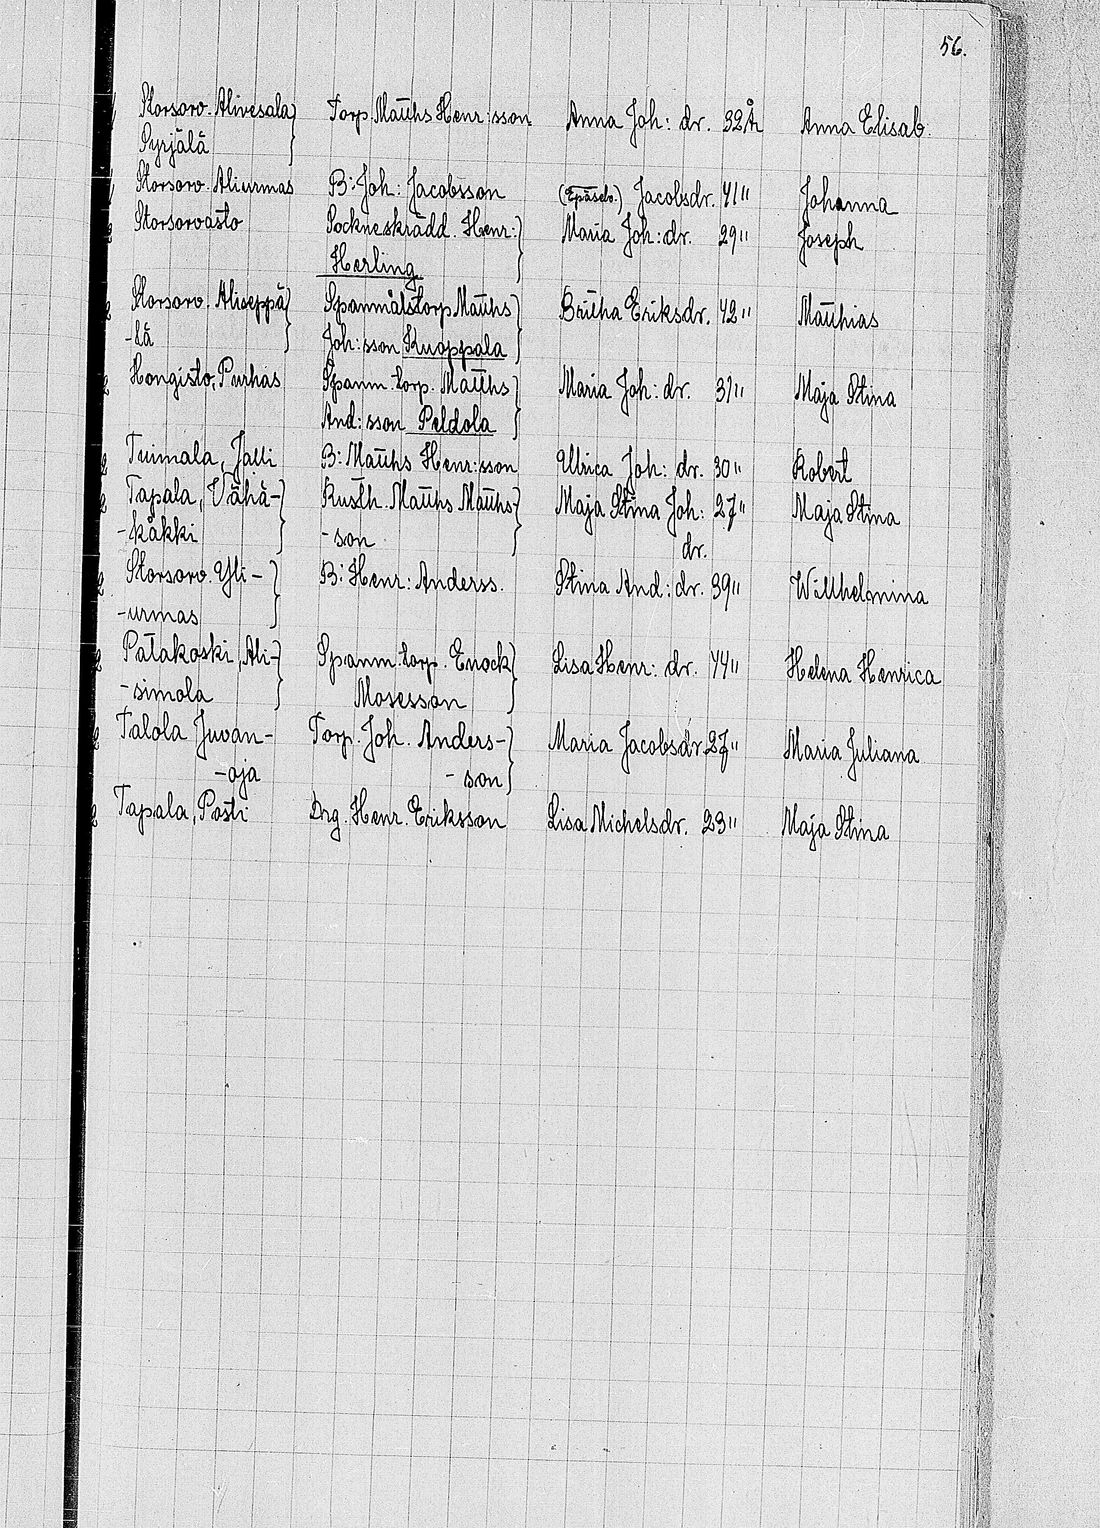 56.
Storsorv. Alivesala Torp. Matths Henr:sson Anna Joh: dr. 32 År Anna Elisab
Pyrjälä
Storsorv. Aliurmas B: Joh: Jacobsson (Epäselv.) Jacobsdr. 41 " Johanna
Storsorvasto Sockneskrädd. Henr: Maria Joh: dr. 29 " Joseph
Herling
Storsorv. Aliseppä Spannmålstorp. Matths Britha Eriksdr. 42 " Matthias
-lä Joh:sson Knappala
Hongisto, Purhas Spanm. torp. Matths Maria Joh: dr. 31 " Maja Stina
And:sson Peldola
Tuimala, Jalli B: Matths Henr:sson Ulrica Joh: dr. 30 " Robert
Tapala, Vähä- Rusth. Matths Matths- Maja Stina Joh: 27 " Maja Stina
-kåkki -son dr.
Storsorv. Yli- B: Henr: Anderss. Stina And: dr. 39 " Willhelmina
-urmas
Patakoski, Ali- Spanm. torp. Enock Lisa Henr: dr. 44 " Helena Henrica
-simola Mosesson
Talola Juvan- Torp. Joh. Anders- Maria Jacobsdr. 27 " Maria Juliana
-oja -son
Tapala, Posti Drg. Henr. Eriksson Lisa Michelsdr. 23 " Maja Stina